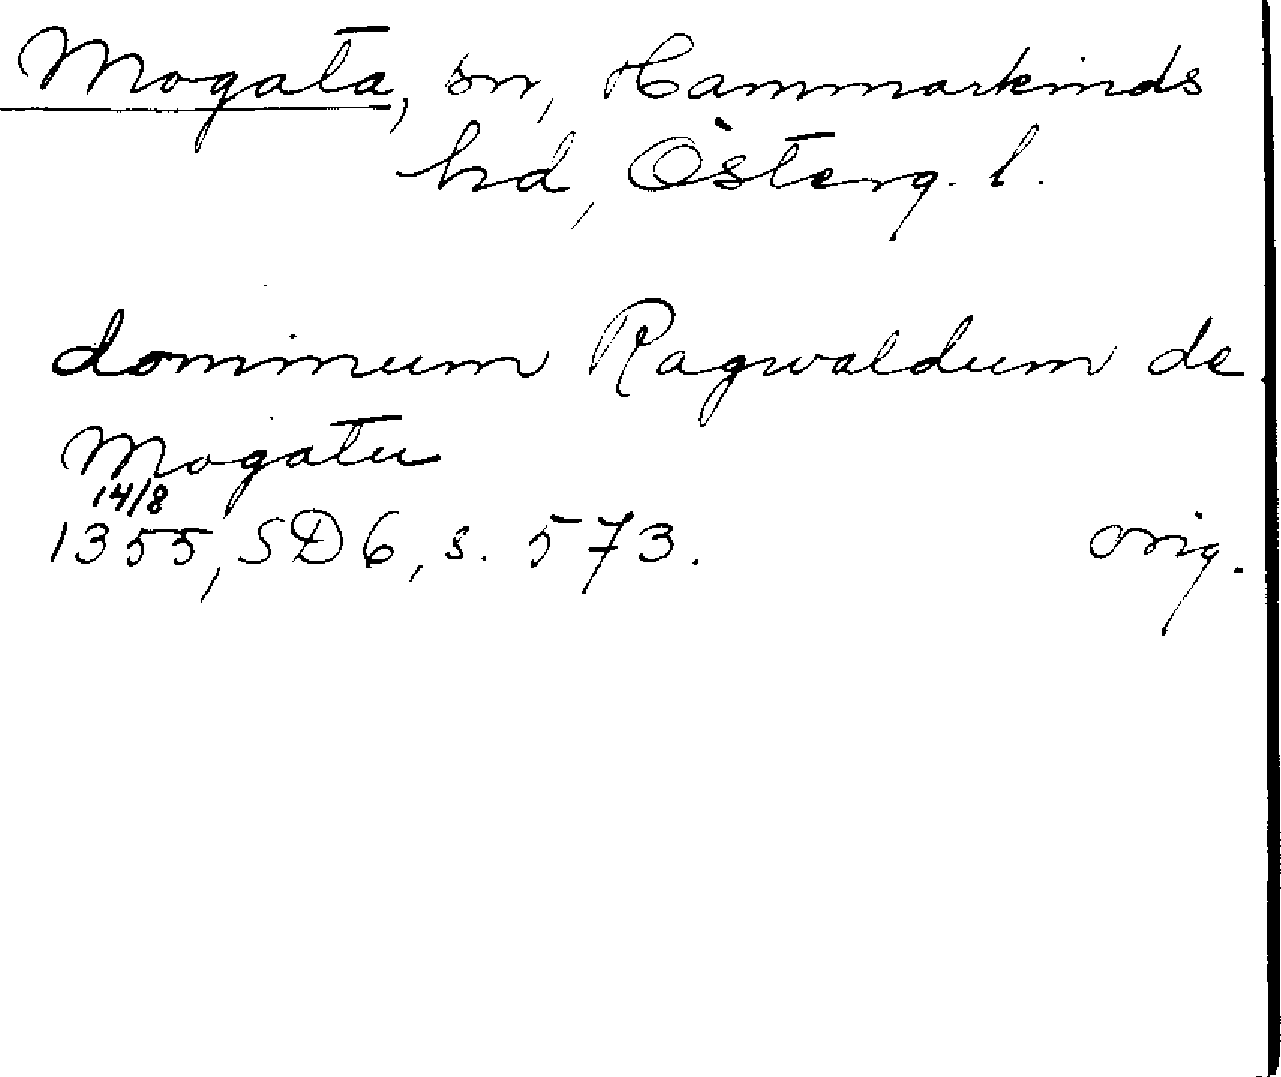 Mogata, sn, Hammarkinds
hd, Österg. l.
dominum Ragwaldum de
Mogatu
14/8
1355, SD 6, s. 573. orig.